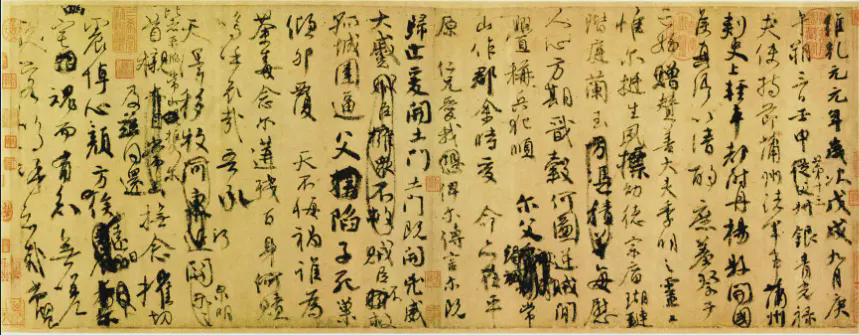 維乾元元年歲次戊戌九月庚
午朔三日壬申第十三從父銀青光祿
夫使持節蒲州諸軍事蒲州
刺史上輕車都尉丹楊縣開國
侯真卿以清酌庶羞祭于
亡姪贈贊善大夫季明之靈曰
惟爾挺生夙標幼德宗廟瑚璉
階庭蘭玉方憑積善每慰
人心方期戩穀何圖逆賊閒
釁稱兵犯順爾父竭誠常
山作郡余時受命亦在平
原仁兄愛我俾爾傳言爾既
歸止爰開土門土門既開凶威
大蹙賊臣擁衆不救賊臣不救
孤城圍逼父陷子死巢
傾卵覆天不悔禍誰為
荼毒念爾遘殘百身何贖
嗚呼哀哉吾承
天澤移牧河東近河關泉明
比者再陷常山攜爾
首櫬亦自常山及茲同還撫念摧切
震悼心顏方俟遠日卜爾
幽宅魂而有知無嗟
久客嗚呼哀哉尚饗